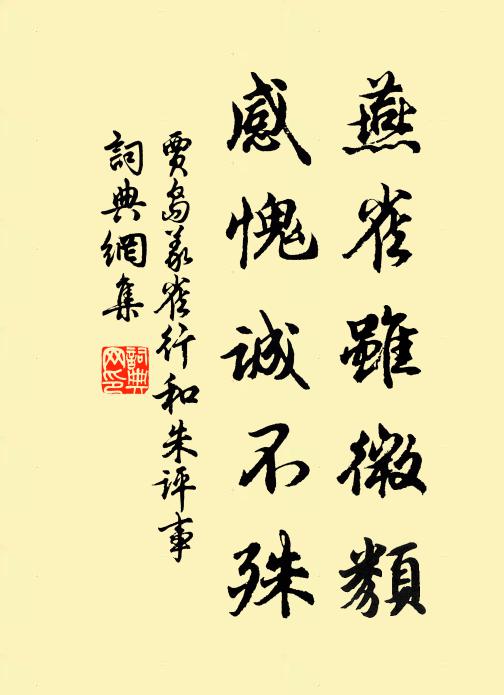 燕雀雖微類
感愧誠不殊
賈島義雀行和朱評事
詞典網集
詞典
网印